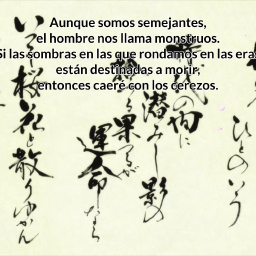 Aunque somos semejantes,
el hombre nos llama monstruos.
Si las sombras en las que rondamos en las eras
están destinadas a morir,
entonces caeré con los cerezos.
ひとのいう
の内に
潜みし影の
果つるが
運命なら
いざ桜花と散りゆかん